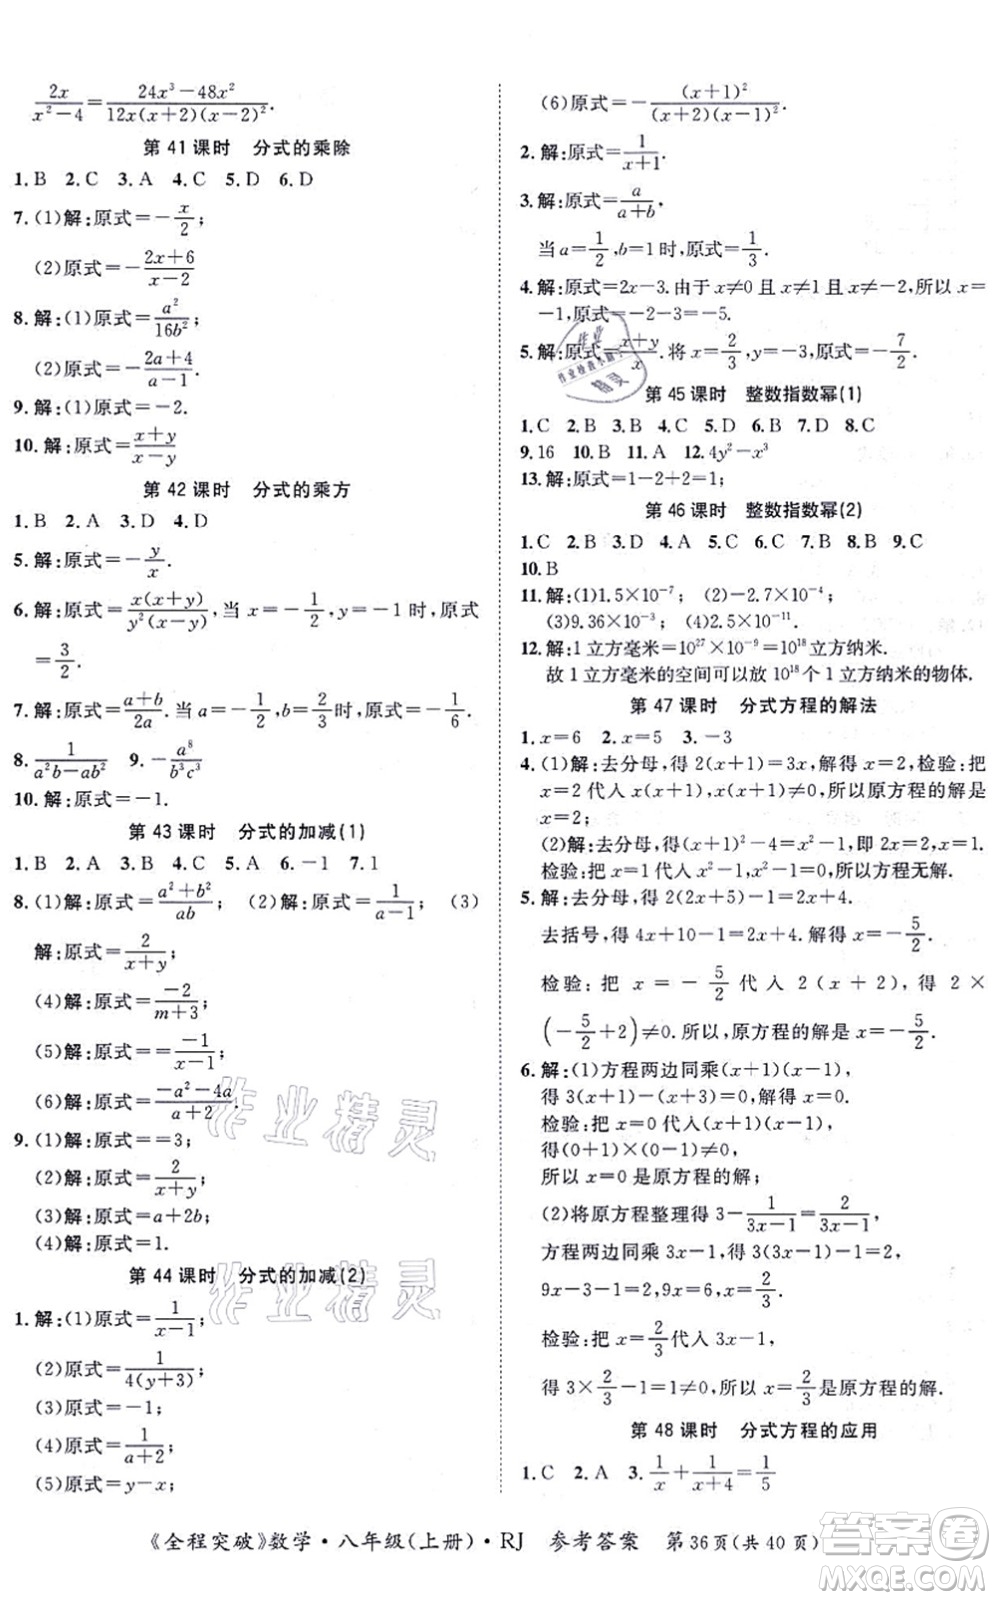 2x/(x²-4)=(24x³-48x²)/(12x(x+2)(x-2)²).
第 41 课时 分式的乘除
1. B 2. C 3. A 4. C 5. D 6. D
7. (1)解:原式=-x/2;
(2)原式=-(2x+6)/(x-2)
8. 解:(1)原式=a²/(16b²);
(2)原式=-(2a+4)/(a-1).
9. 解:(1)原式=-2.
10. 解:原式=(x+y)/(x-y)
第 42 课时 分式的乘方
1. B 2. A 3. D 4. D
5. 解:原式=-y/x.
6. 解:原式=x(x+y)/(y²(x-y)),当 x=-1/2,y=-1时,原式
=3/2.
7. 解:原式=(a+b)/(2a).当 a=-1/2,b=2/3时,原式=-1/6.
8. 1/(a²b-ab²) 9. -a⁸/(b³c³)
10. 解:原式=-1.
第 43 课时 分式的加减(1)
1. B 2. A 3. A 4. C 5. D 6. -1 7. 1
8. (1)解:原式=(a²+b²)/(ab); (2)解:原式=1/(a-1); (3)
解:原式=2/(x+y);
(4)解:原式=-2/(m+3);
(5)解:原式==-1/(x-1);
(6)解:原式=(-a²-4a)/(a+2).
9. (1)解:原式==3;
(2)解:原式=2/(x+y);
(3)解:原式=a+2b;
(4)解:原式=1.
第 44 课时 分式的加减(2)
1. 解:(1)原式=1/(x-1);
(2)原式=1/(4(y+3));
(3)原式=-1;
(4)原式=1/(a+2);
(5)原式=x-x²;
(6)原式=-(x+1)²/((x+2)(x-1)²).
2. 解:原式=1/(x+1).
3. 解:原式=a/(a+b),
当a=1/2,b=1时,原式=1/3.
4. 解:原式=2x-3.由于 x≠0 且 x≠-2,所以 x=
-1,原式=-2-3=-5.
5. 解:原式=(x+y)/x.将 x=2/3,y=-3,原式=-7/2.
第 45 课时 整数指数幂(1)
1. C 2. B 3. B 4. C 5. D 6. B 7. D 8. C
9. 16 10. B 11. A 12. 4y²-x³
13. 解:原式=1-2+2=1;
第 46 课时 整数指数幂(2)
1. C 2. B 3. D 4. C 5. A 6. C 7. B 8. B 9. C
10. B
11. 解:(1)1.5×10⁻⁷; (2)-2.7×10⁻⁴;
(3)9.36×10⁻³; (4)2.5×10⁻¹¹.
12. 解:1立方毫米=10²⁷×10⁻⁹=10¹⁸立方纳米.
故 1 立方毫米的空间可以放 10¹⁸ 个 1 立方纳米的物体.
第 47 课时 分式方程的解法
1. x=6 2. x=5 3. -3
4. (1)解:去分母,得 2(x+1)=3x,解得 x=2,检验:把
x=2 代入 x(x+1)≠0,所以原分式方程的解为
x=2;
(2)解:去分母,得(x+1)²-4=x²-1,解得 x=1.
检验:把 x=1代入 x²-1,得x²-1=0,所以方程无解.
5. 解:去分母,得 2(2x+5)-1=2x+4.
去括号,得 4x+10-1=2x+4.解得 x=-5/2.
检验:把 x=-5/2 代入 2(x+2),得 2×
(-5/2+2)≠0.所以,原方程的解是 x=-5/2.
6. 解:(1)方程两边同乘(x+1)(x-1),
得 3(x+1)-(x+3)=0,解得 x=0.
检验:把 x=0 代入(x+1)(x-1),
得(0+1)×(0-1)≠0,
所以 x=0 是原方程的解;
(2)将原方程整理得 3-1/(3x-1)=2/(3x-1),
方程两边同乘 3x-1,得 3(3x-1)-1=2,
9x-3-1=2,9x=6,解得 x=2/3.
检验:把 x=2/3代入 3x-1,
得 3×2/3-1≠0,所以 x=2/3是原方程的解.
第 48 课时 分式方程的应用
1. C 2. A 3. 1/x+1/(x+4)=1/5
《全程突破》数学·八年级(上册)·RJ 参考答案 第36页(共 40 页)
作业精灵
作业精灵
作业
精灵
作业检查小助手
答案圈
MXQE.COM